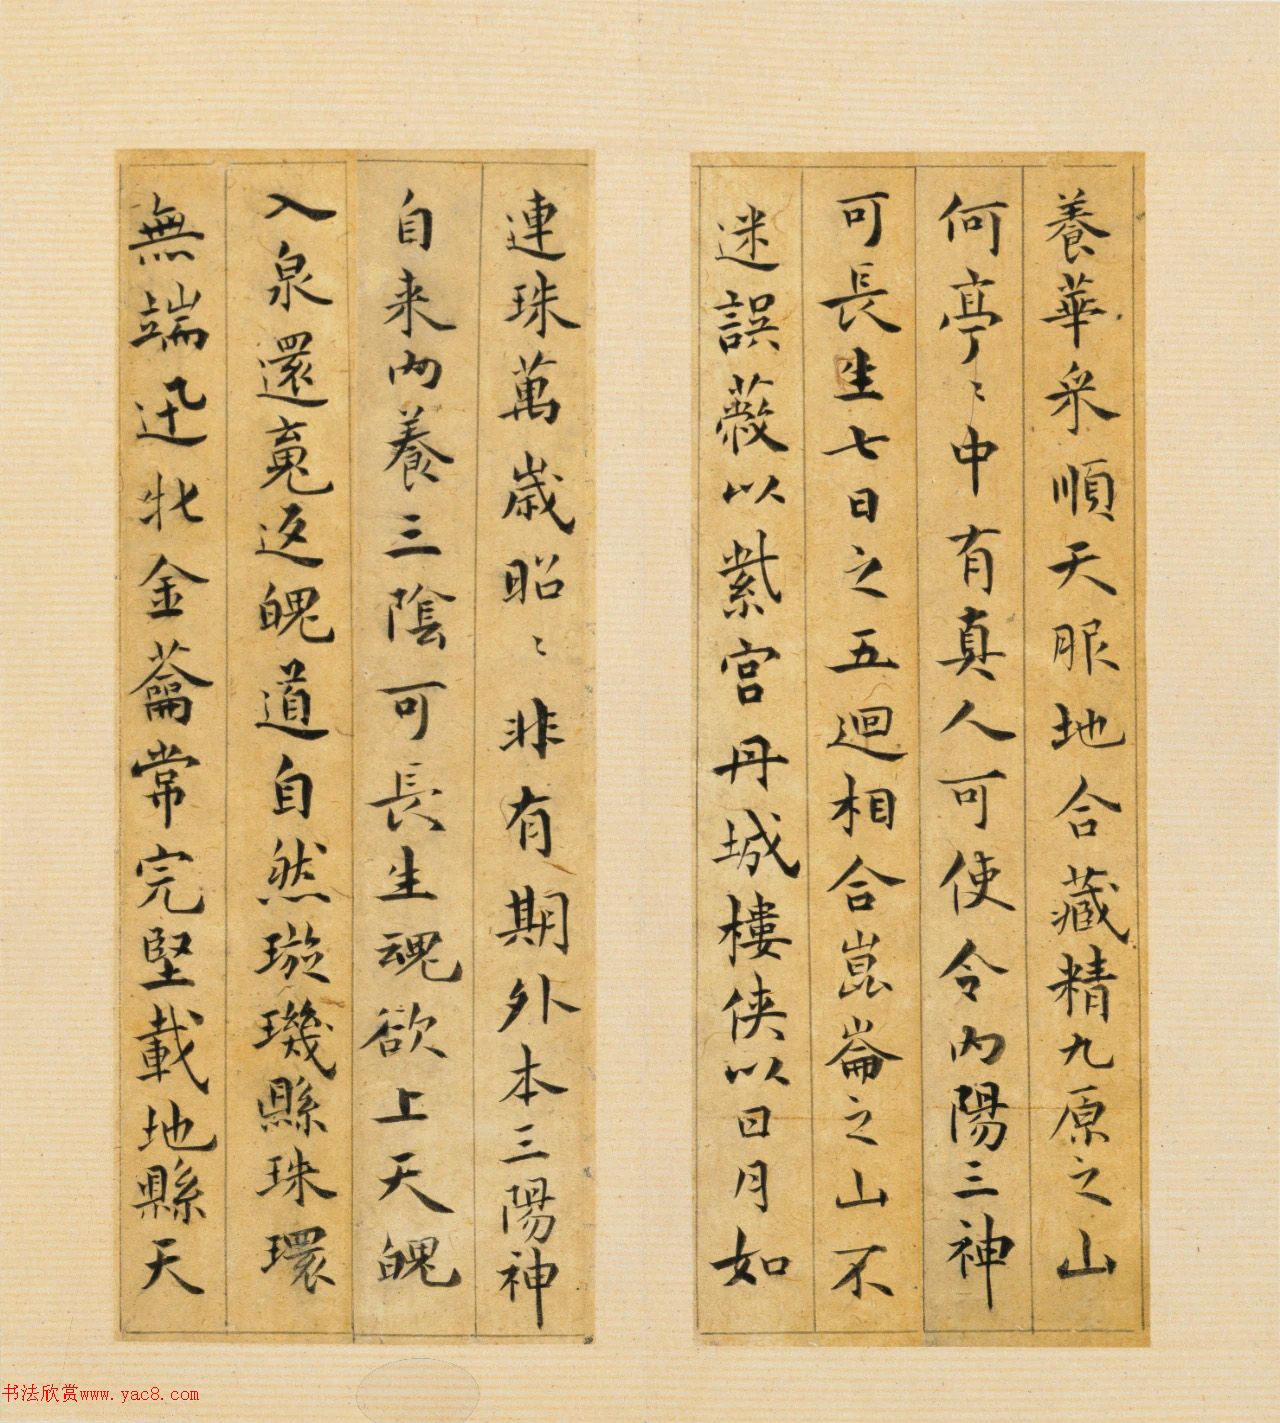 養華采順天服地合藏精九原之山
何亭〻中有真人可使令內陽三神
可長生七日之五迴相合崑崙之山不
迷誤蔽以紫宮丹城樓俠以日月如
連珠萬歲昭〻非有期外本三陽神
自来內養三陰可長生魂欲上天魄
入泉還䰟返魄道自然璇璣縣珠環
無端迅牝金蘥常完堅載地縣天
书法欣赏www.yac8.com